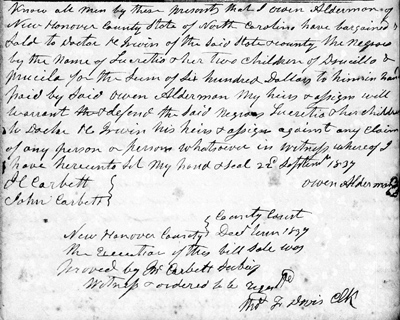 Know all men by these presents that I Owen Alderman of
New Hanover County State of North Carolina have bargained &
Sold to Doctor H. Irwin of the Said State & county the Negroes
by the Name of Lucretia & her two Children
& for the Sum of Six hundred Dollars to him in hand
paid by Said Owen Alderman My heirs & assigns will
warrant & defend the said Negroes Lucretia & her children
to Doctor H. Irwin his heirs & assigns against any Claim
of any person or persons whatsoever in Witness whereof I
have hereunto Set My hand & Seal 1837
Corbett
Owen Alderman
John Corbett
County Court
New Hanover County 1837
The Execution of this bill Sale was
proved by Corbett
Witness & ordered to be
Davis Clk